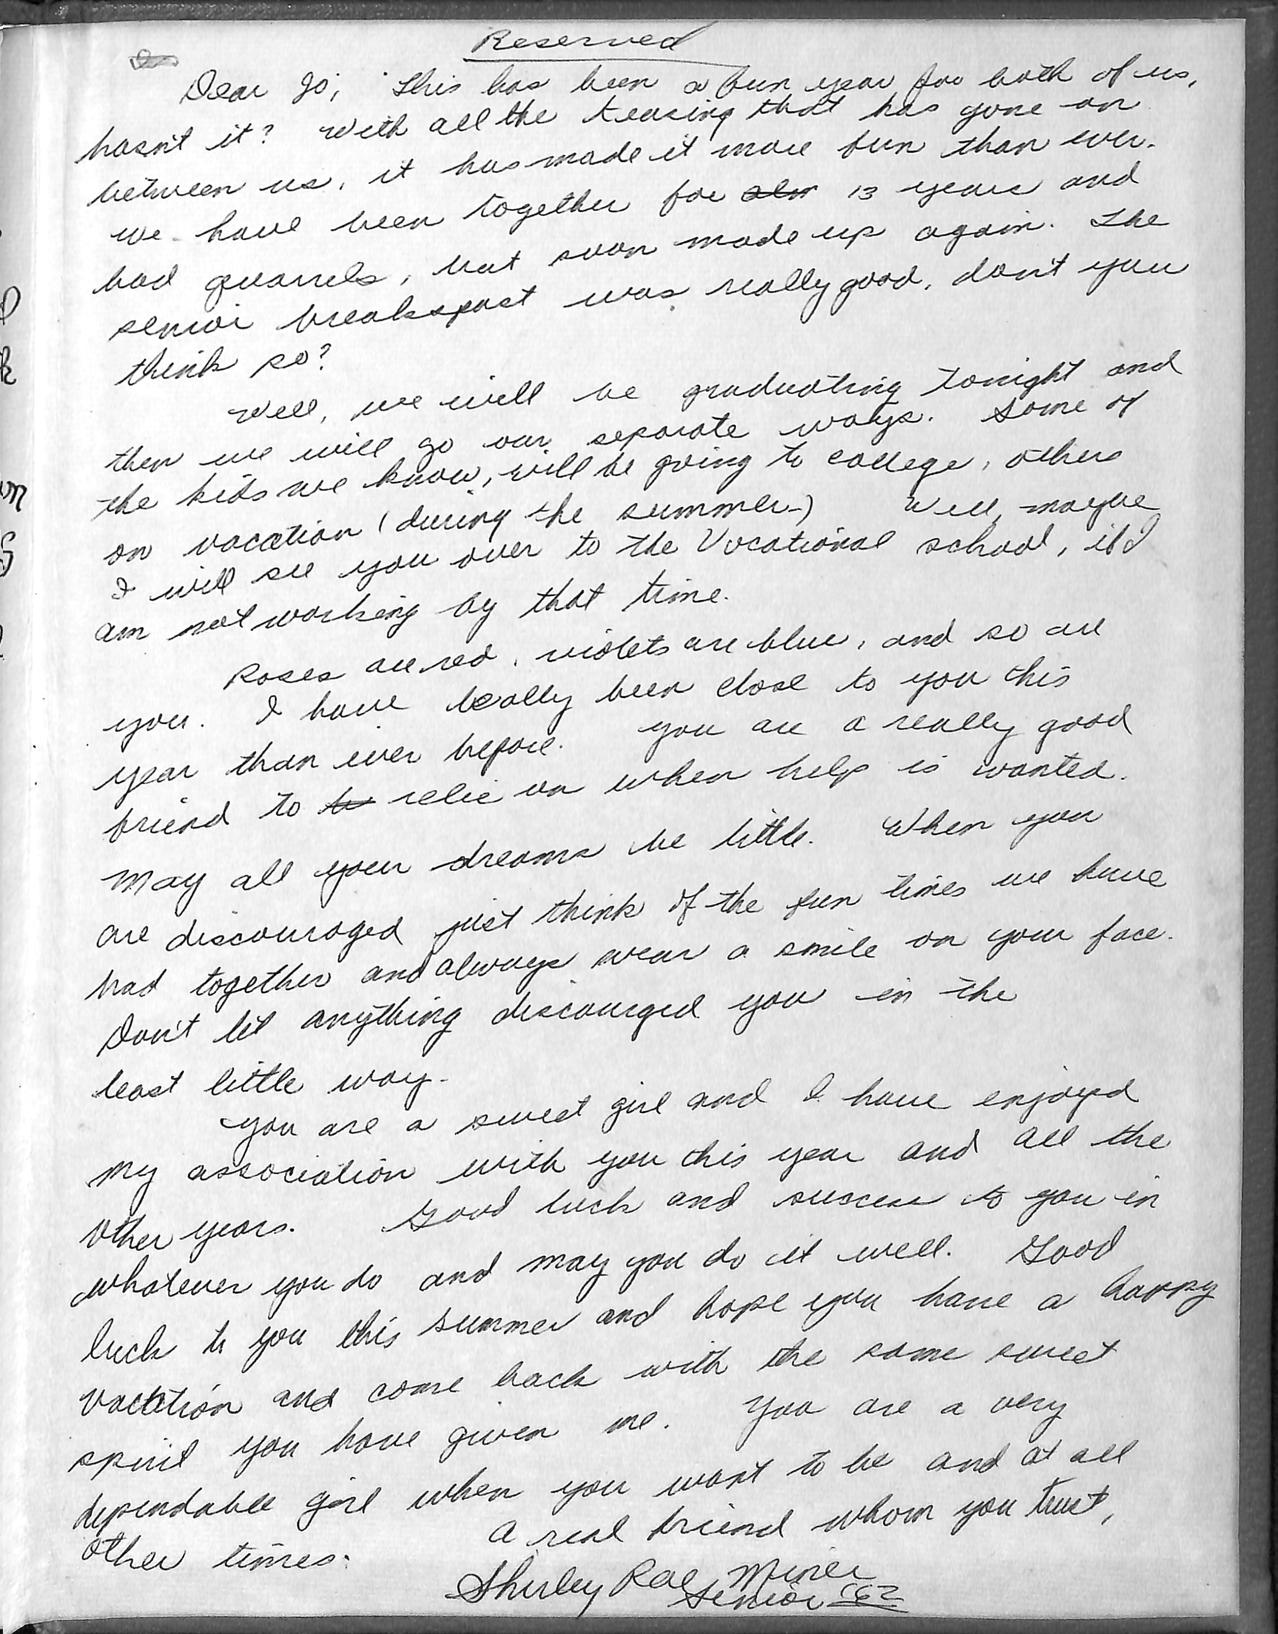 Reserved
Dear Jo, This has been a fun year for both of us,
hasn't it? With all the teasing that has gone on
between us, it has made it more fun than ever.
we have been together for 13 years and
had quarrels, but soon made up again. The
senior breakfast was really good, don't you
think so?
Well, we will be graduating tonight and
then we will go our separate ways. Some of
the kids we know, will be going to college, others
on vacation (during the summer.) Well, maybe
I will see you over to the Vocational school, if I
am not working by that time.
Roses are red, violets are blue, and so are
you. I have really been close to you this
year than ever before. You are a really good
friend to relie on when help is wanted.
May all your dreams be little. When you
are discouraged just think of the fun times we have
had together and always wear a smile on your face.
Don't let anything discourged you in the
least little way.
You are a sweet girl and I have enjoyd
my association with you this year and all the
other years. Good luck and success to you in
whatever you do and may you do it well. Good
luck to you this summer and hope you have a happy
vacation and come back with the same sweet
spirit you have given me. You are a very
dependable girl when you want to be and at all
other times. A real friend whom you trust,
Shirley Rae Miner
Senior '62